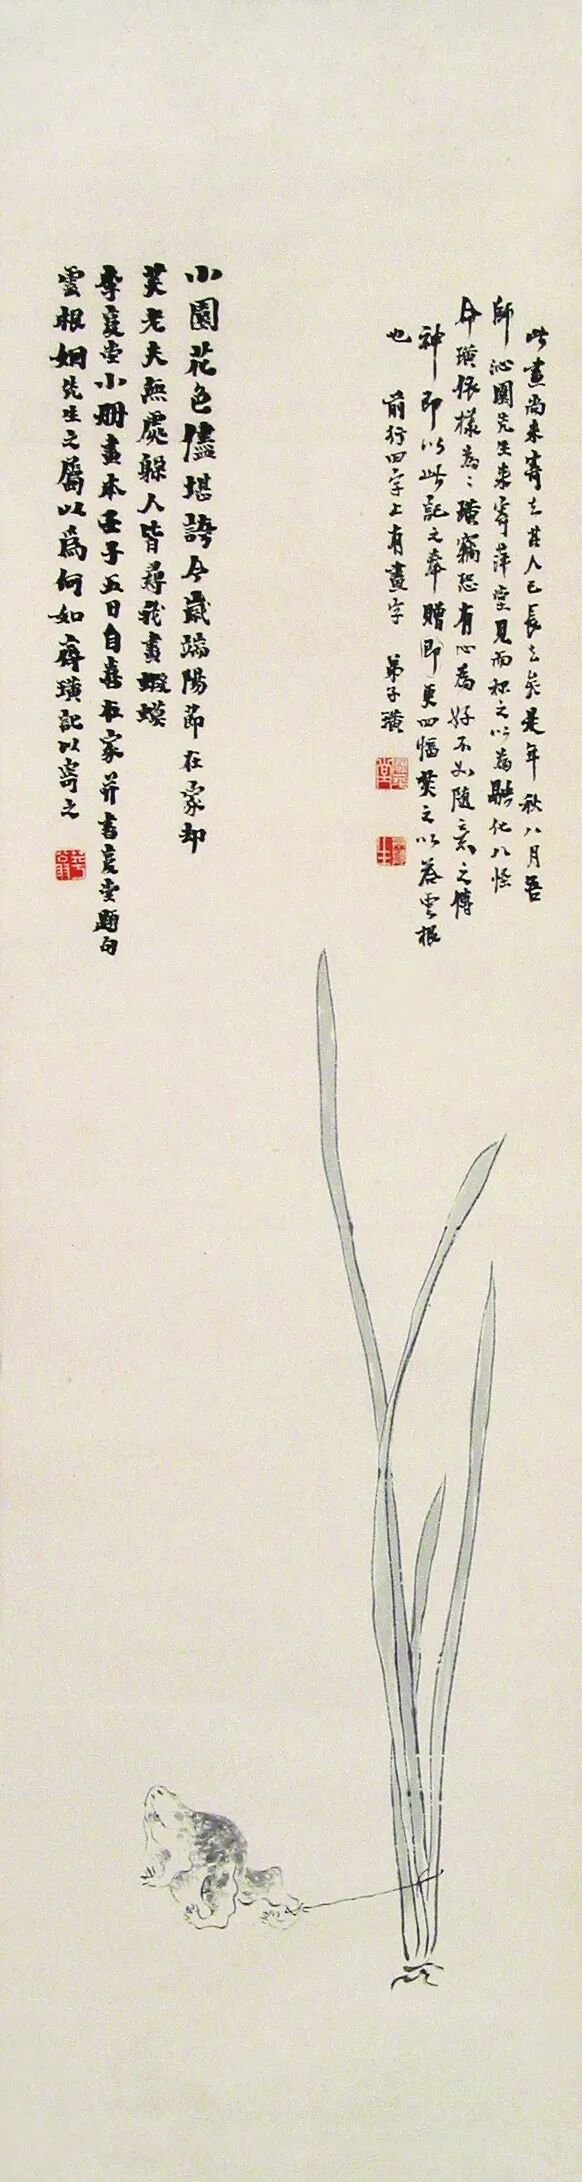 此畫尚未寄去其人已長去矣是年秋八月吾
師沁園先生來寄萍堂見而稱之以為融化八怪
命璜依樣為之璜竊恐有心為好不如隨意之傳
神即以此記之奉贈即更四幅焚之以答雲根
也 前行四字上有畫字 弟子璜
小園花色儘堪誇今歲端陽節在家却
笑老夫無處躲人皆尋我畫蝦蟆
李復堂小冊畫本壬子五日自喜在家并書復堂題句
雲根姻先生之屬以為何如齊璜記以寄之